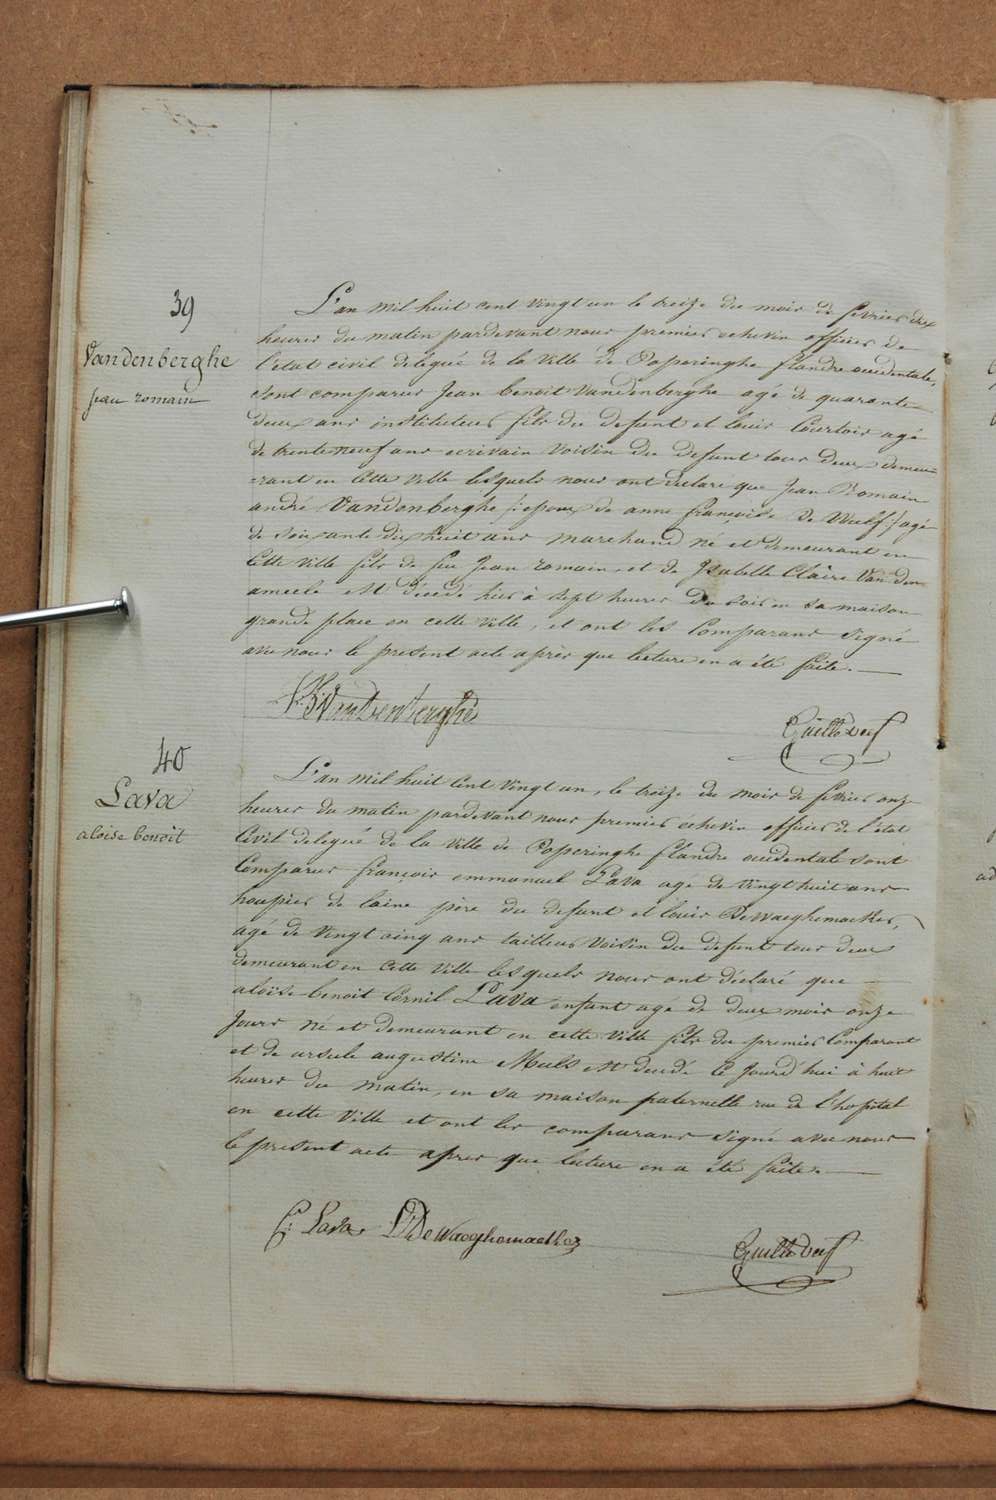 39
Vandenberghe
Jean romain
L'an mil huit cent vingt un le treize du mois de fevrier dix
heures du matin pardevant nous premier echevin officier de
l'etat civil delegué de la ville de Poperinghe flandre occidentale,
sont comparus Jean benoit Vandenberghe agé de quarante
deux ans instituteur fils du defunt et louis Courtois agé
de trente neuf ans ecrivain voisin du defunt tous deux demeu-
-rant en cette ville lesquels nous ont declare que Jean Romain
andré Vandenberghe /: epoux de anne françoise De Wulf :/ agé
de soixante dix huit ans marchand né et demeurant en
cette ville fils de feu Jean romain et de Isabelle Claire Vanden
ameele est décédé hier à sept heures du soir en sa maison
grande place en cette ville, et ont les comparans signé
avec nous le present acte après que lecture en a été faite.
J: B: VanDenberghe
40
Lava
aloïse benoit
L'an mil huit cent vingt un, le treize du mois de fevrier onze
heures du matin pardevant nous premier échevin officier de l'état
Civil delegué de la ville de Poperinghe flandre occidentale sont
Comparus françois emmanuel Lava agé de vingt huit ans
houpier de laine père du defunt et louis DeWaeghemaeker,
agé de vingt cinq ans tailleur voisin du defunt tous deux
demeurant en cette ville lesquels nous ont déclaré que
aloïse benoit Cornil Lava enfant agé de deux mois onze
Jours né et demeurant en cette ville fils du premier Comparant
et de ursule augustine Meuls est decédé ce Jourd'hui à huit
heures du matin, en sa maison paternelle rue de l'hopital
en cette Ville et ont les comparans signé avec nous
le present acte après que lecture en a été faite.
f: Lava L DeWaeghemaeker